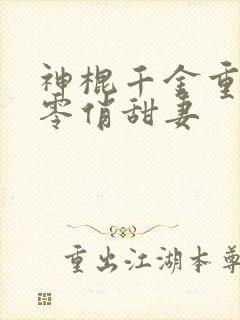 神棍千金重
零俏甜妻
重出江湖本尊